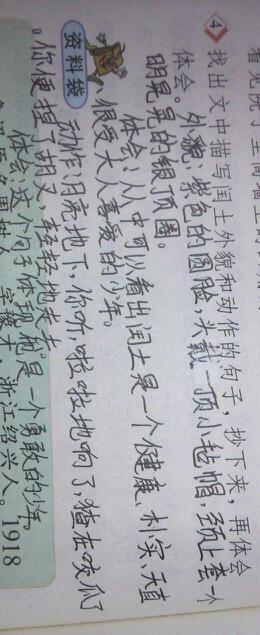 4 找出文中描写闰土外貌和动作的句子，抄下来，再体会
体会。外貌：紫色的圆脸，头戴一顶小毡帽，颈上套一个
明晃晃的银项圈。
体会：从中可以看出闰土是一个健康、朴实、天真
、很受大人喜爱的少年。
资料袋
动作：月亮地下，你听，啦啦地响了，猹在咬瓜
。你便捏了胡叉，轻轻地走去
体会：这个句子体现他是一个勇敢的少年。
字豫才，浙江绍兴人。1918